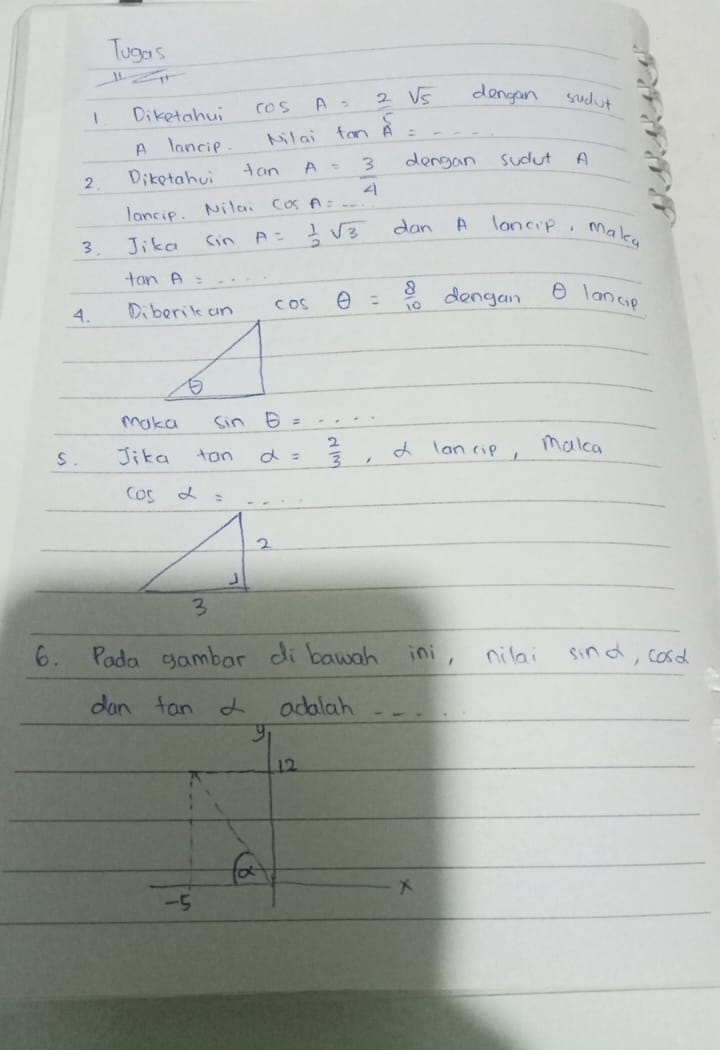 Tugas
1. Diketahui cos A = 2/5 √5 dengan sudut
A lancip. Nilai tan A = ....
2. Diketahui tan A = 3/4 dengan sudut A
lancip. Nilai cos A = ....
3. Jika sin A = 1/2 √3 dan A lancip, maka
tan A = ....
4. Diberikan cos θ = 8/10 dengan θ lancip
θ
maka sin θ = ....
5. Jika tan α = 2/3, α lancip, maka
cos α = ....
2
3
6. Pada gambar di bawah ini, nilai sin α, cos α
dan tan α adalah .....
y
12
α
x
-5